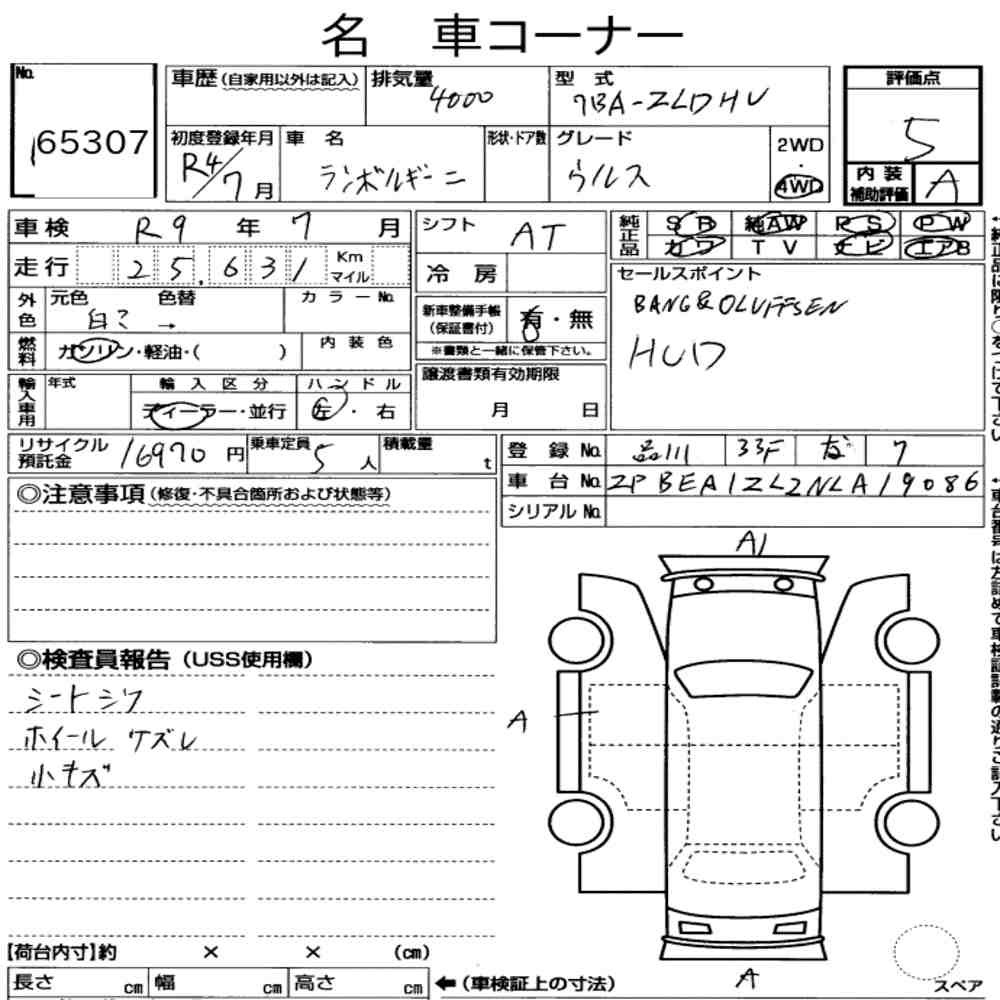 名 車コーナー
No.
65307
車歴(自家用以外は記入)
排気量
4000
型 式
7BA-ZLDHU
評価点
5
初度登録年月
R4/7月
車 名
ランボルギーニ
形状・ドア数
グレード
ウルス
2WD
・
4WD
内装
補助評価
A
車検 R9 年 7 月
走行 25,631 Km マイル
外色
元色 色替
白ミ →
カラーNo.
燃料
ガソリン・軽油・( )
内装色
輸入車用
年式
輸入区分
ディーラー・並行
ハンドル
左・右
シフト
AT
冷房
新車整備手帳
(保証書付)
有・無
※書類と一緒に保管下さい。
譲渡書類有効期限
月 日
純正品
SR 純AW PS PW
カワ TV ナビ エアB
セールスポイント
BANG&OLUFFSEN
HUD
リサイクル
預託金
16970 円
乗車定員
5 人
積載量
t
登録No. 品川 33F 7
車台No. ZPBEA1ZL2NLA19086
シリアルNo.
◎注意事項(修復・不具合箇所および状態等)
◎検査員報告(USS使用欄)
シートシワ
ホイールケズレ
小キズ
A1
A
A
【荷台内寸】約 × × (cm)
長さ cm 幅 cm 高さ cm
←(車検証上の寸法)
スペア